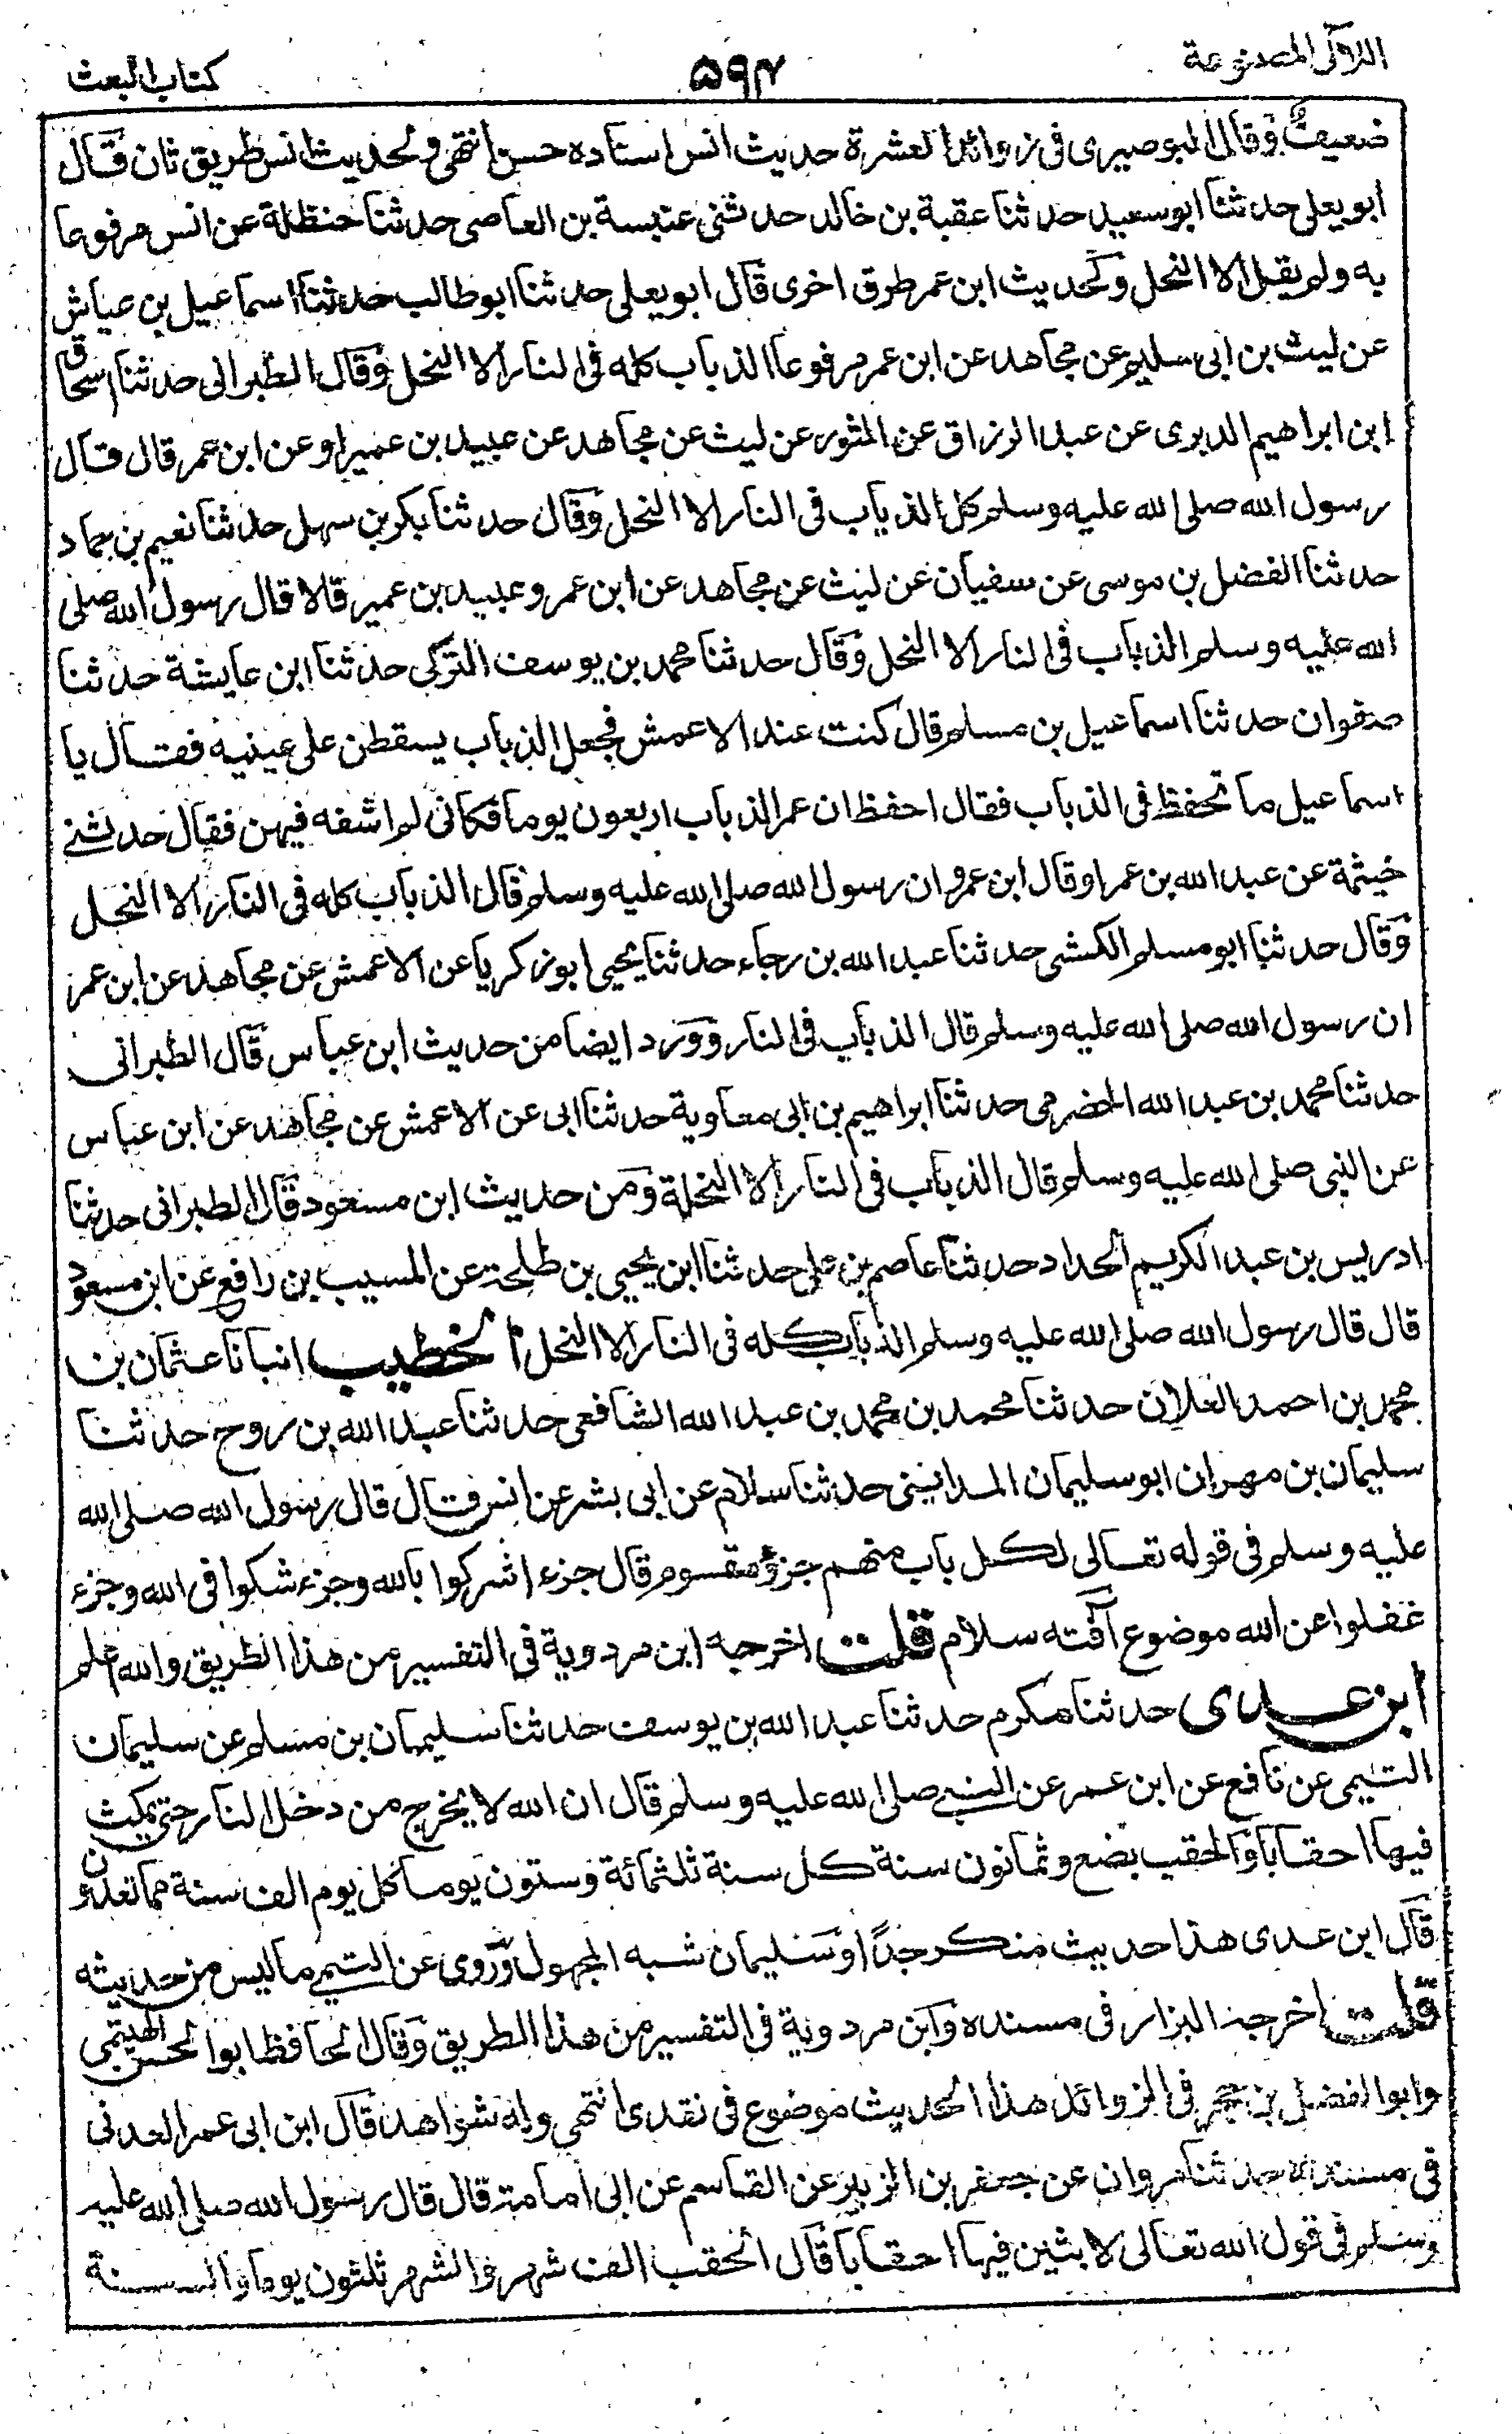 اللآلى المصنوعة
۵۹۴
كتاب البعث
ضعيف وقال البوصيرى فى زوائد العشرة حديث انس اسناده حسن انتهى ولحديث انس طريق ثان قال
ابو يعلى حدثنا ابو سعيد حدثنا عقبة بن خالد حدثنى عنبسة بن العاصى حدثنا حنظلة عن انس مرفوعا
به ولم يقل الا النحل ولحديث ابن عمر طرق اخرى قال ابو يعلى حدثنا ابو طالب حدثنا اسماعيل بن عياش
عن ليث بن ابى سليم عن مجاهد عن ابن عمر مرفوعا الذباب كله فى النار الا النحل وقال الطبرانى حدثنا اسحاق
ابن ابراهيم الدبرى عن عبد الرزاق عن الثورى عن ليث عن مجاهد عن عبيد بن عمير او عن ابن عمر قال قال
رسول الله صلى الله عليه وسلم كل الذباب فى النار الا النحل وقال حدثنا بكر بن سهل حدثنا نعيم بن حماد
حدثنا الفضل بن موسى عن سفيان عن ليث عن مجاهد عن ابن عمر وعبيد بن عمير قالا قال رسول الله صلى
الله عليه وسلم الذباب فى النار الا النحل وقال حدثنا محمد بن يوسف التركى حدثنا ابن عايشة حدثنا
صفوان حدثنا اسماعيل بن مسلم قال كنت عند الاعمش فجعل الذباب يسقطن على عينيه فقال يا
اسماعيل ما تحفظ فى الذباب فقال احفظ ان عمر الذباب اربعون يوما فكانى لم اشفه فيهن فقال حدثنى
خيثمة عن عبد الله بن عمر او قال ابن عمرو ان رسول الله صلى الله عليه وسلم قال الذباب كله فى النار الا النحل
وقال حدثنا ابو مسلم الكشى حدثنا عبد الله بن رجاء حدثنا يحيى ابو زكريا عن الاعمش عن مجاهد عن ابن عمر
ان رسول الله صلى الله عليه وسلم قال الذباب فى النار وورد ايضا من حديث ابن عباس قال الطبرانى
حدثنا محمد بن عبد الله الحضرمى حدثنا ابراهيم بن ابى معاوية حدثنا ابى عن الاعمش عن مجاهد عن ابن عباس
عن النبى صلى الله عليه وسلم قال الذباب فى النار الا النحلة ومن حديث ابن مسعود قال الطبرانى حدثنا
ادريس بن عبد الكريم الحداد حدثنا عاصم بن على حدثنا ابن يحيى بن طلحة عن المسيب بن رافع عن ابن مسعود
قال قال رسول الله صلى الله عليه وسلم الذباب كله فى النار الا النحل الخطيب انبانا عثمان بن
محمد بن احمد العلان حدثنا محمد بن محمد بن عبد الله الشافعى حدثنا عبد الله بن روح حدثنا
سليمان بن مهران ابو سليمان المداينى حدثنا سلام عن ابى بشر عن انس قال قال رسول الله صلى الله
عليه وسلم فى قوله تعالى لكل باب منهم جزؤ مقسوم قال جزء اشركوا بالله وجزء شكوا فى الله وجزء
غفلوا عن الله موضوع آفته سلام قلت اخرجه ابن مردوية فى التفسير من هذا الطريق والله اعلم
ابن عدى حدثنا مكرم حدثنا عبد الله بن يوسف حدثنا سليمان بن مسلم عن سليمان
التيمى عن نافع عن ابن عمر عن النبى صلى الله عليه وسلم قال ان الله لا يخرج من دخل النار حتى يمكث
فيها احقابا والحقب بضع وثمانون سنة كل سنة ثلثمائة وستون يوما كل يوم الف سنة مما تعدون
قال ابن عدى هذا حديث منكر جدا وسليمان شبه المجهول وروى عن التيمى ما ليس من حديثه
قلت اخرجه البزار فى مسنده وابن مردوية فى التفسير من هذا الطريق وقال الحافظ ابو الحسن الهيتمى
وابو الفضل بن حجر فى الزوائد هذا الحديث موضوع فى نقدى انتهى وله شواهد قال ابن ابى عمر العدنى
فى مسنده حدثنا مروان عن جعفر بن الزبير عن القاسم عن ابى امامة قال قال رسول الله صلى الله عليه
وسلم فى قول الله تعالى لابثين فيها احقابا قال الحقب الف شهر والشهر ثلثون يوما والسنة